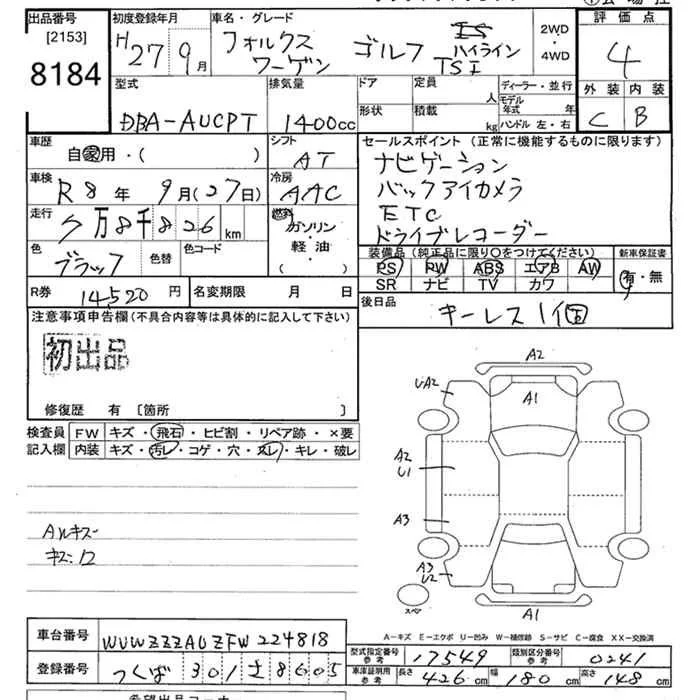 出品番号 初度登録年月 車名・グレード 評価点
[2153]
8184
H27年9月 フォルクスワーゲン ゴルフ TSI ハイライン 2WD・4WD 4
型式 排気量 ドア 定員 人 ディーラー・並行 外装 内装
形状 積載 kg モデル年式 年 ハンドル 左・右
DBA-AUCPT 1400cc C B
車歴 自家用・( ) シフト AT
セールスポイント (正常に機能するものに限ります)
ナビゲーション
バックアイカメラ
ETC
ドライブレコーダー
車検 R8年9月(27日) 冷房 AAC
走行 5万8千826km 燃料 ガソリン・軽油・( )
色 ブラック 色替 色コード
装備品 (純正品に限り○をつけてください) 新車保証書
PS PW ABS エアB AW 有・無
SR ナビ TV カワ
R券 14520円 名変期限 月 日 後日品
キーレス1個
注意事項申告欄(不具合内容等は具体的に記入して下さい)
初出品
修復歴 有 [箇所 ]
検査員 FW キズ・飛石・ヒビ割・リペア跡・×要
記入欄 内装 キズ・汚レ・コゲ・穴・スレ・キレ・破レ
A2
UA2 A1
A2
U1
A3
A3
U2
A1
スペア
Aルキズ
キズ:12
A-キズ E-エクボ U-凹み W-補修跡 S-サビ C-腐食 XX-交換済
車台番号 WVWZZZAUZFW224818
型式指定番号 参考 17549 類別区分番号 参考 0241
登録番号 つくば 301 8605
車庫証明用 参考 長さ 426cm 幅 180cm 高さ 148cm